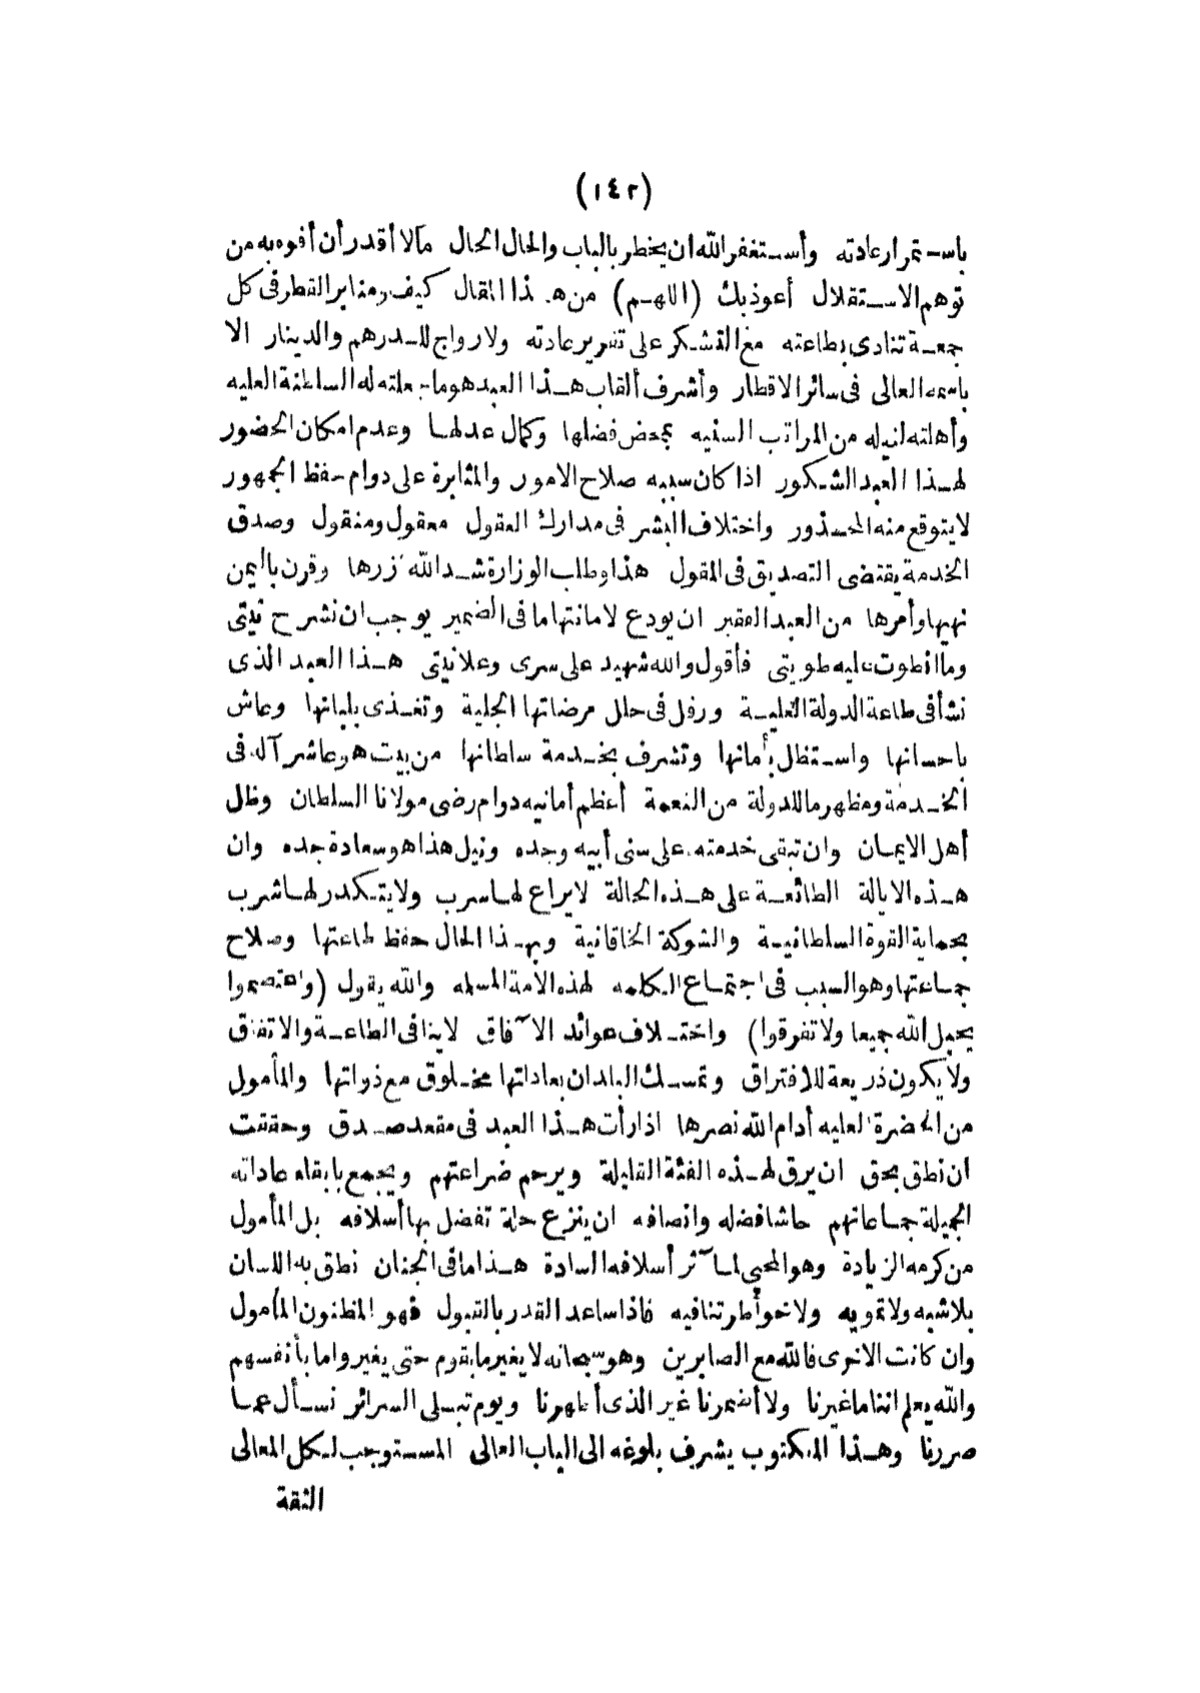 (١٤٢)
باستمرار عادته وأستغفر الله ان يخطر بالباب والحال الحال مالا أقدر أن أفوه به من
توهم الاستقلال أعوذ بك (اللهم) من هذا المقال كيف ومنابر القطر فى كل
جمعة تنادى بطاعته مع التشكر على تقرير عادته ولا رواج للدرهم والدينار الا
باسمه العالى فى سائر الاقطار وأشرف ألقاب هذا العبد هو ما جعلته له السلطنة العليه
وأهلته لنيله من المراتب السنيه بمحض فضلها وكمال عدلها وعدم امكان الحضور
لهذا العبد الشكور اذا كان سببه صلاح الامور والمثابرة على دوام حفظ الجمهور
لا يتوقع منه المحذور واختلاف البشر فى مدارك العقول معقول ومنقول وصدق
الخدمة يقتضى التصديق فى المقول هذا وطلب الوزارة شد الله أزرها وقرن باليمن
نهيها وأمرها من العبد الفقير ان يودع لامانتها ما فى الضمير يوجب ان نشرح نيتى
وما انطوت عليه طويتى فأقول والله شهيد على سرى وعلانيتى هذا العبد الذى
نشأ فى طاعة الدولة العلية ورفل فى حلل مرضاتها الجلية وتغذى بلبانها وعاش
باحسانها واستظل بأمانها وتشرف بخدمة سلطانها من بيت هو عاشر آله فى
الخدمة ومظهر ما للدولة من النعمة أعظم أمانيه دوام رضى مولانا السلطان وظل
أهل الايمان وان تبقى خدمته على سنى أبيه وجده ونيل هذا هو سعادة جده وان
هذه الايالة الطائعة على هذه الحالة لا يراع لها سرب ولا يتكدر لها شرب
بحماية القوة السلطانية والشوكة الخاقانية وبهذا الحال حفظ طاعتها وصلاح
جماعتها وهو السبب فى اجتماع الكلمه لهذه الأمة المسلمه والله يقول (واعتصموا
بحبل الله جميعا ولا تفرقوا) واختلاف عوائد الآفاق لا ينافى الطاعة والاتفاق
ولا يكون ذريعة للافتراق وتمسك البلدان بعاداتها مخلوق مع ذواتها والمأمول
من الحضرة العليه أدام الله نصرها اذا رأت هذا العبد فى مقعد صدق وحققت
ان نطق بحق ان يرق لهذه الفئة القليلة ويرحم ضراعتهم ويجمع بابقاء عاداته
الجميلة جماعاتهم حاشا فضله وانصافه ان ينزع حلة تفضل بها أسلافه بل المأمول
من كرمه الزيادة وهو المحيى لمآثر أسلافه السادة هذا ما فى الجنان نطق به اللسان
بلا شبه ولا تمويه ولا خواطر تنافيه فاذا ساعد القدر بالقبول فهو المظنون المأمول
وان كانت الاخرى فالله مع الصابرين وهو سبحانه لا يغير ما بقوم حتى يغيروا ما بأنفسهم
والله يعلم اننا ما غيرنا ولا أضمرنا غير الذى أظهرنا ويوم تبلى السرائر نسأل عما
صررنا وهذا المكتوب يشرف بلوغه الى الباب العالى المستوجب لكل المعالى
الثقة